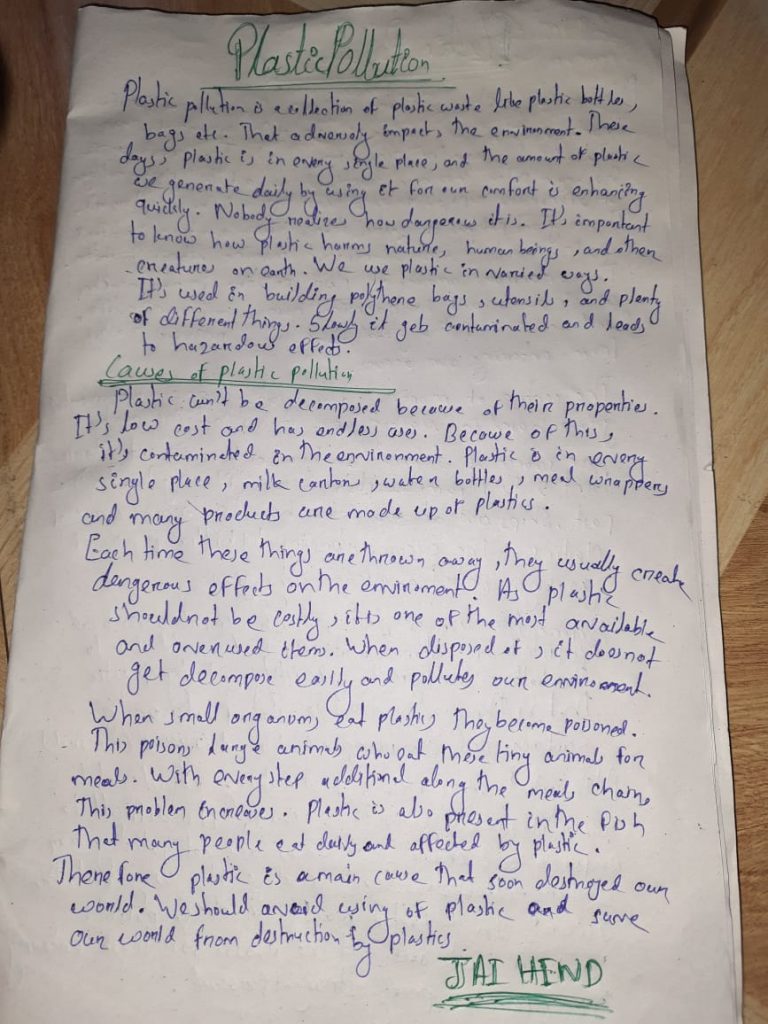 Plastic Pollution
Plastic pollution is a collection of plastic waste like plastic bottles,
bags etc. That adversely impacts the environment. These
days, plastic is in every single place, and the amount of plastic
we generate daily by using it for our comfort is enhancing
quickly. Nobody realizes how dangerous it is. It's important
to know how plastic harms nature, human beings, and other
creatures on earth. We use plastic in varied ways.
It's used in building polythene bags, utensils, and plenty
of different things. Slowly it gets contaminated and leads
to hazardous effects.
Causes of plastic pollution
Plastic can't be decomposed because of their properties.
It's low cost and has endless uses. Because of this,
it's contaminated in the environment. Plastic is in every
single place, milk carton, water bottles, meal wrappers
and many products are made up of plastics.
Each time these things are thrown away, they usually create
dangerous effects on the enviroment. As plastic
shouldnot be costly, it is one of the most available
and overused items. When disposed of, it doesnot
get decompose easily and pollutes our environment.
When small organums eat plastics they become poisoned.
This poisons large animals who eat these tiny animals for
meals. With every step additional along the meals chain,
This problem increases. Plastic is also present in the fish
that many people eat daily and affected by plastic.
Therefore plastic is a main cause that soon destroyed our
world. We should avoid using of plastic and save
our world from destruction by plastics.
JAI HIND